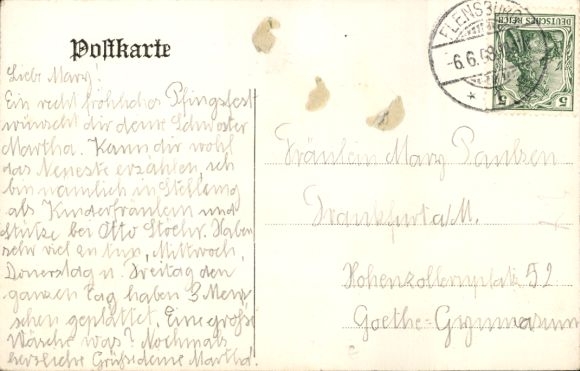 Postkarte
Liebe Mary!
Ein recht fröhliches Pfingstfest
wünscht dir deine Schwester
Martha. Kann dir wohl
das Neueste erzählen, ich
bin nämlich in Stellung
als Kinderfräulein und
Stütze bei Otto Stoehr. Haben
sehr viel zu tun, Mittwoch,
Donerstag u. Freitag den
ganzen Tag haben 3 Men
schen geplättet. Eine große
Wäsche was? Nochmals
herzliche Grüße deine Martha.
FLENSBURG
-6.6.08
DEUTSCHES REICH
5 5
Fräulein Mary Paulsen
Frankfurt a/M.
Hohenzollernplatz 52
Goethe-Gymnasium